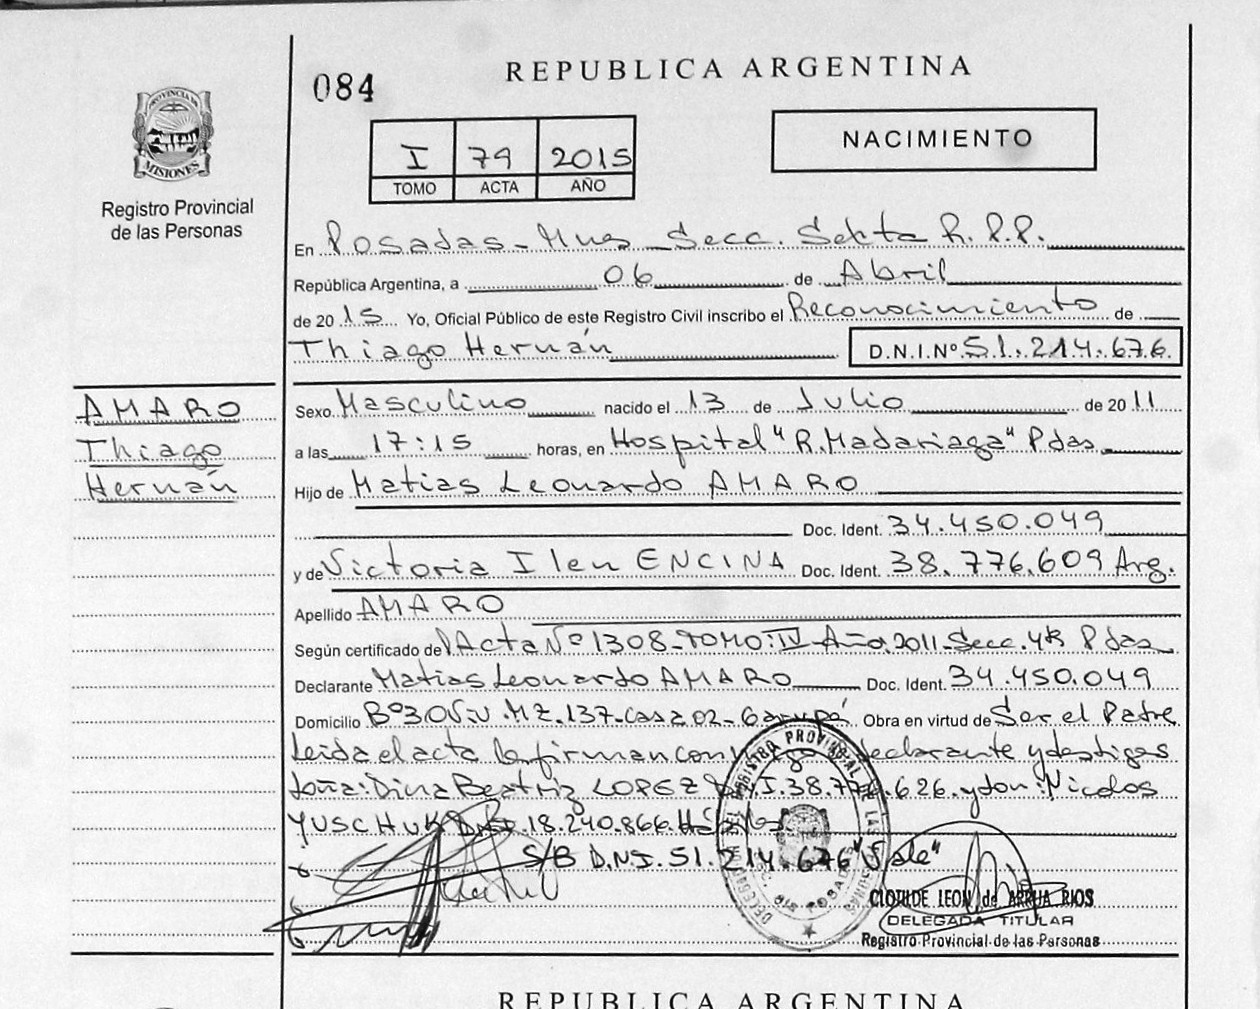 084
REPUBLICA ARGENTINA
NACIMIENTO
I 79 2015
TOMO ACTA AÑO
PROVINCIA DE
MISIONES
Registro Provincial
de las Personas
En Posadas - Mnes Secc. Sexta R.P.P.
República Argentina, a 06 de Abril
de 2015 Yo, Oficial Público de este Registro Civil inscribo el Reconocimiento de
Thiago Hernán D.N.I.Nº.51.214.676.
AMARO
Thiago
Hernán
Sexo Masculino nacido el 13 de Julio de 2011
a las 17:15 horas, en Hospital "R. Madariaga" Pdas
Hijo de Matias Leonardo AMARO
Doc. Ident. 34.450.049
y de Victoria Ilen ENCINA Doc. Ident. 38.776.609 Arg.
Apellido AMARO
Según certificado de Acta Nº 1308 - TOMO: IV - Año 2011 - Secc. 4ta Pdas
Declarante Matias Leonardo AMARO Doc. Ident. 34.450.049
Domicilio Bº 30 Viv. MZ. 137 - Casa 02 - Garupá Obra en virtud de Ser el Padre
Leida el acta la firman con declarante y testigos
doña: Dina Beatriz LOPEZ D.N.I. 38.77 .626. y don: Nicolas
YUSCHUK D.N.I. 18.240.866.
S/B D.N.I. 51.214.676 "Vale"
CLOTILDE LEON de ARRUA RIOS
DELEGADA TITULAR
Registro Provincial de las Personas
REPUBLICA ARGENTINA